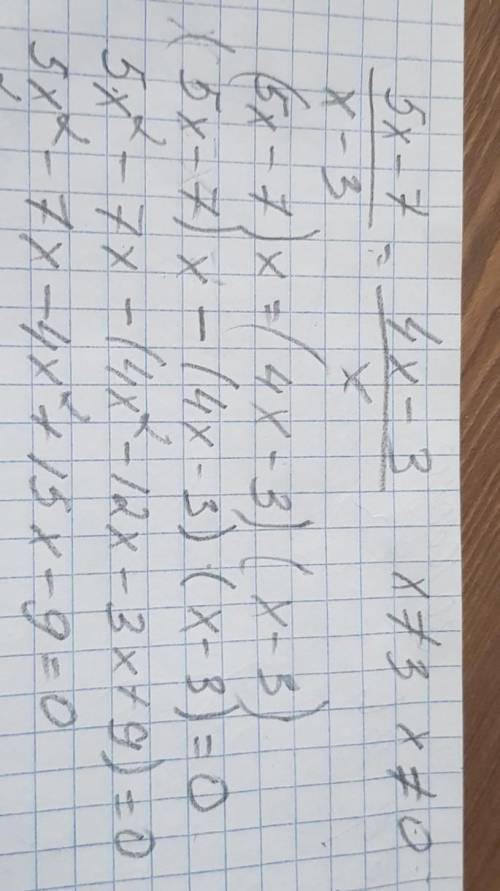 5x-7/x-3 = 4x-3/x x≠3 x≠0
(5x-7)x=(4x-3)(x-3)
(5x-7)x-(4x-3)(x-3)=0
5x²-7x-(4x²-12x-3x+9)=0
5x²-7x-4x²+15x-9=0